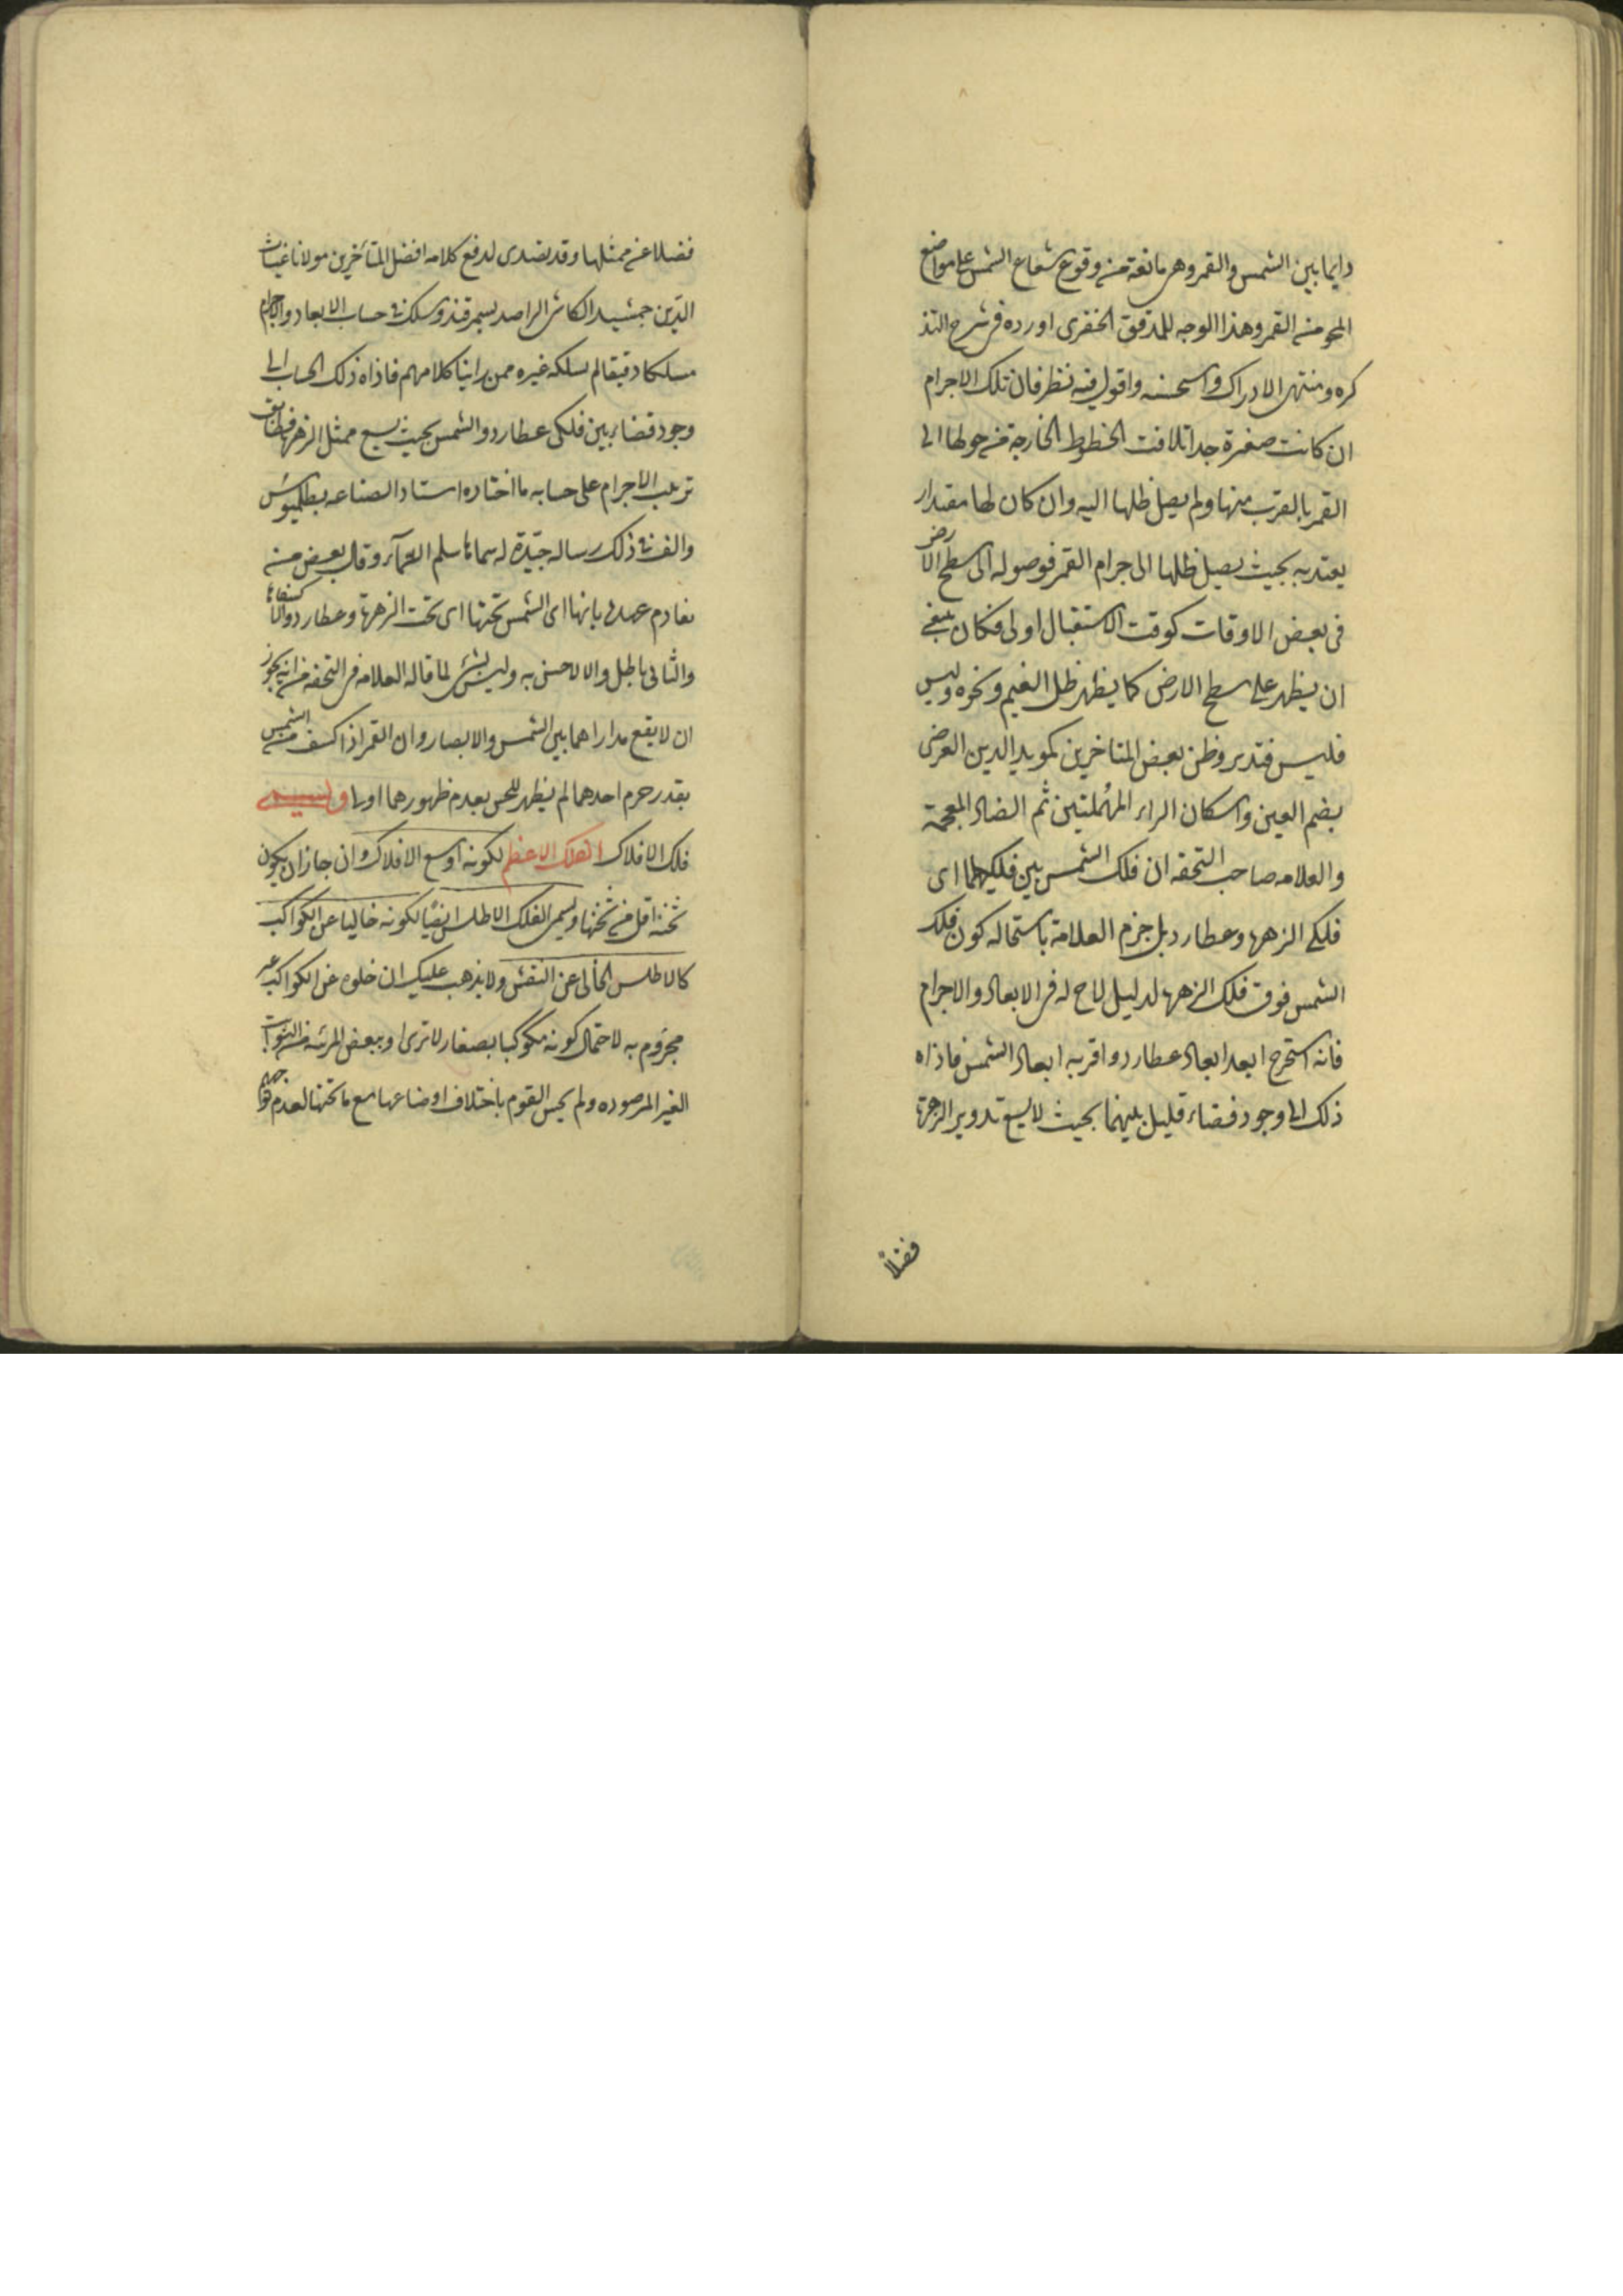 دايما بين الشمس والقمر وهى مانعة من وقوع شعاع الشمس على مواضع
المحو من القمر وهذا الوجه للمدقق الخفرى اورده فى شرح التذ
كره ومنتهى الادراك واستحسنه واقول فيه نظر فان تلك الاجرام
ان كانت صغيرة جدا تلاقت الخطوط الخارجة من حولها الى
القمر بالقرب منها ولم يصل ظلها اليه وان كان لها مقدار
يعتد به بحيث يصل ظلها الى جرام القمر فوصوله الى سطح الارض
فى بعض الاوقات كوقت الاستقبال اولى فكان ينبغى
ان يظهر على سطح الارض كما يظهر ظل الغيم ونحوه وليس
فليس فتدبر وظن بعض المتاخرين كمويد الدين العرضى
بضم العين واسكان الراء المهملتين ثم الضاد المعجمة
والعلامه صاحب التحفه ان فلك الشمس بين فلكيهما اى
فلكى الزهرة وعطارد بل جزم العلامة باستحاله كون فلك
الشمس فوق فلك الزهرة لدليل لاح له فى الابعاد والاجرام
فانه استخرج ابعد ابعاد عطارد واقرب ابعاد الشمس فاذاه
ذلك الى وجود فضاء قليل بينهما بحيث لا يسع تدوير الزهرة
فضلاً
فضلا عن ممثلها وقد تصدى لدفع كلامه افضل المتأخرين مولانا غياث
الدين جمشيد الكاشى الراصد بسمرقند وسلك فى حساب الابعاد والاجرام
مسلكا دقيقا لم يسلكه غيره ممن راينا كلامهم فاذاه ذلك الحساب الى
وجود فضاء بين فلكى عطارد والشمس بحيث يسع ممثل الزهرة فطابق
ترتيب الاجرام على حسابه ما اختاره استاد الصناعه بطلميوس
والف فى ذلك رساله جيدة له سماها سلم السمآء وقال بعض من
تقادم عهده بانها اى الشمس تحتها اى تحت الزهرة وعطارد والا كسفاها
والثانى باطل والا لاحس به وليس بشئ لما قاله العلامه فى التحفه من انه يجوز
ان لا يقع مداراهما بين الشمس والابصار وان القمر اذا كسف من الشمس
بقدر جرم احدهما لم يظهر للحس بعدم ظهورهما اولى ويسمى
فلك الافلاك الفلك الاعظم لكونه اوسع الافلاك وان جاز ان يكون
ثخنه اقل من ثخنها ويسمى الفلك الاطلس ايضا لكونه خاليا عن الكواكب
كالاطلس الخالى عن النقش ولا يذهب عليك ان خلوه عن الكواكب غير
مجزوم به لاحتمال كونه مكوكبا بصغار لا ترى او ببعض المرئية من الثوابت
الغير المرصوده ولم يحس القوم باختلاف اوضاعها مع ما تحتها لعدم